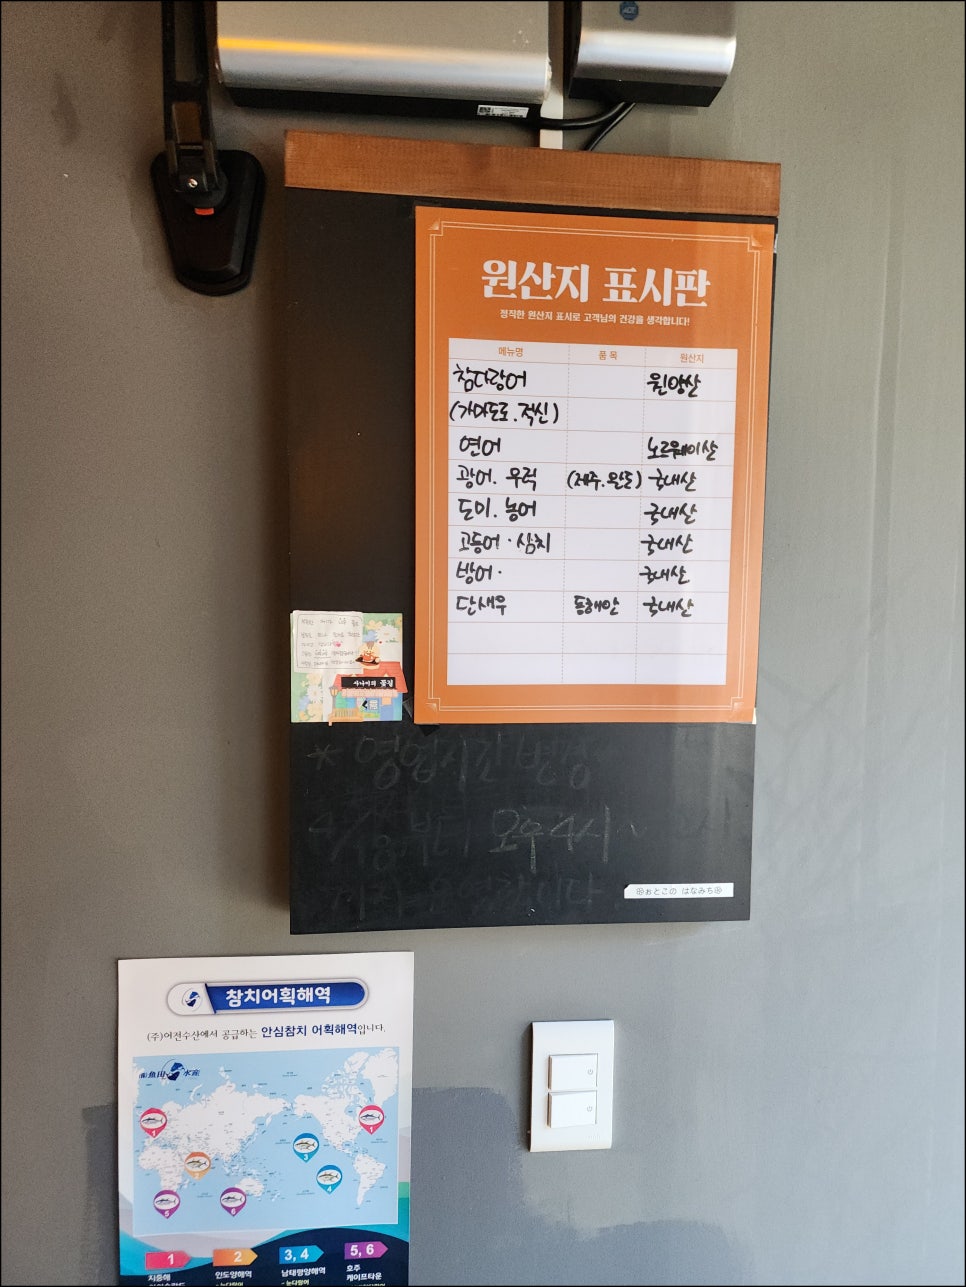 원산지 표시판
정직한 원산지 표시로 고객님의 건강을 생각합니다!
메뉴명 품목 원산지
참다랑어 원양산
(가마도로.적신)
연어 노르웨이산
광어. 우럭 (제주.완도) 국내산
도미. 농어 국내산
고등어 · 삼치 국내산
방어 · 국내산
단새우 동해안 국내산
사나이의 꽃길
* 영업시간 변경
4/18부터 오후4시
おとこの はなみち
참치어획해역
(주)어전수산에서 공급하는 안심참치 어획해역입니다.
魚田 水産
1
1
2
3
4
5
6
1 2 3, 4 5, 6
지중해 인도양해역 남태평양해역 호주
케이프타운